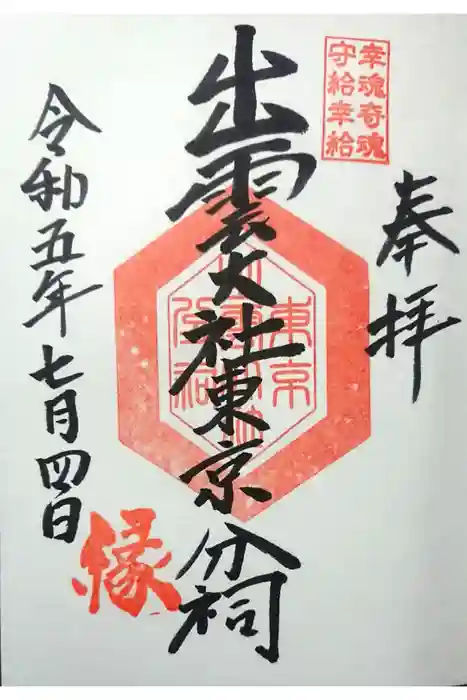 奉拝
幸魂奇魂
守給幸給
出雲大社東京分祠
令和五年七月四日
縁